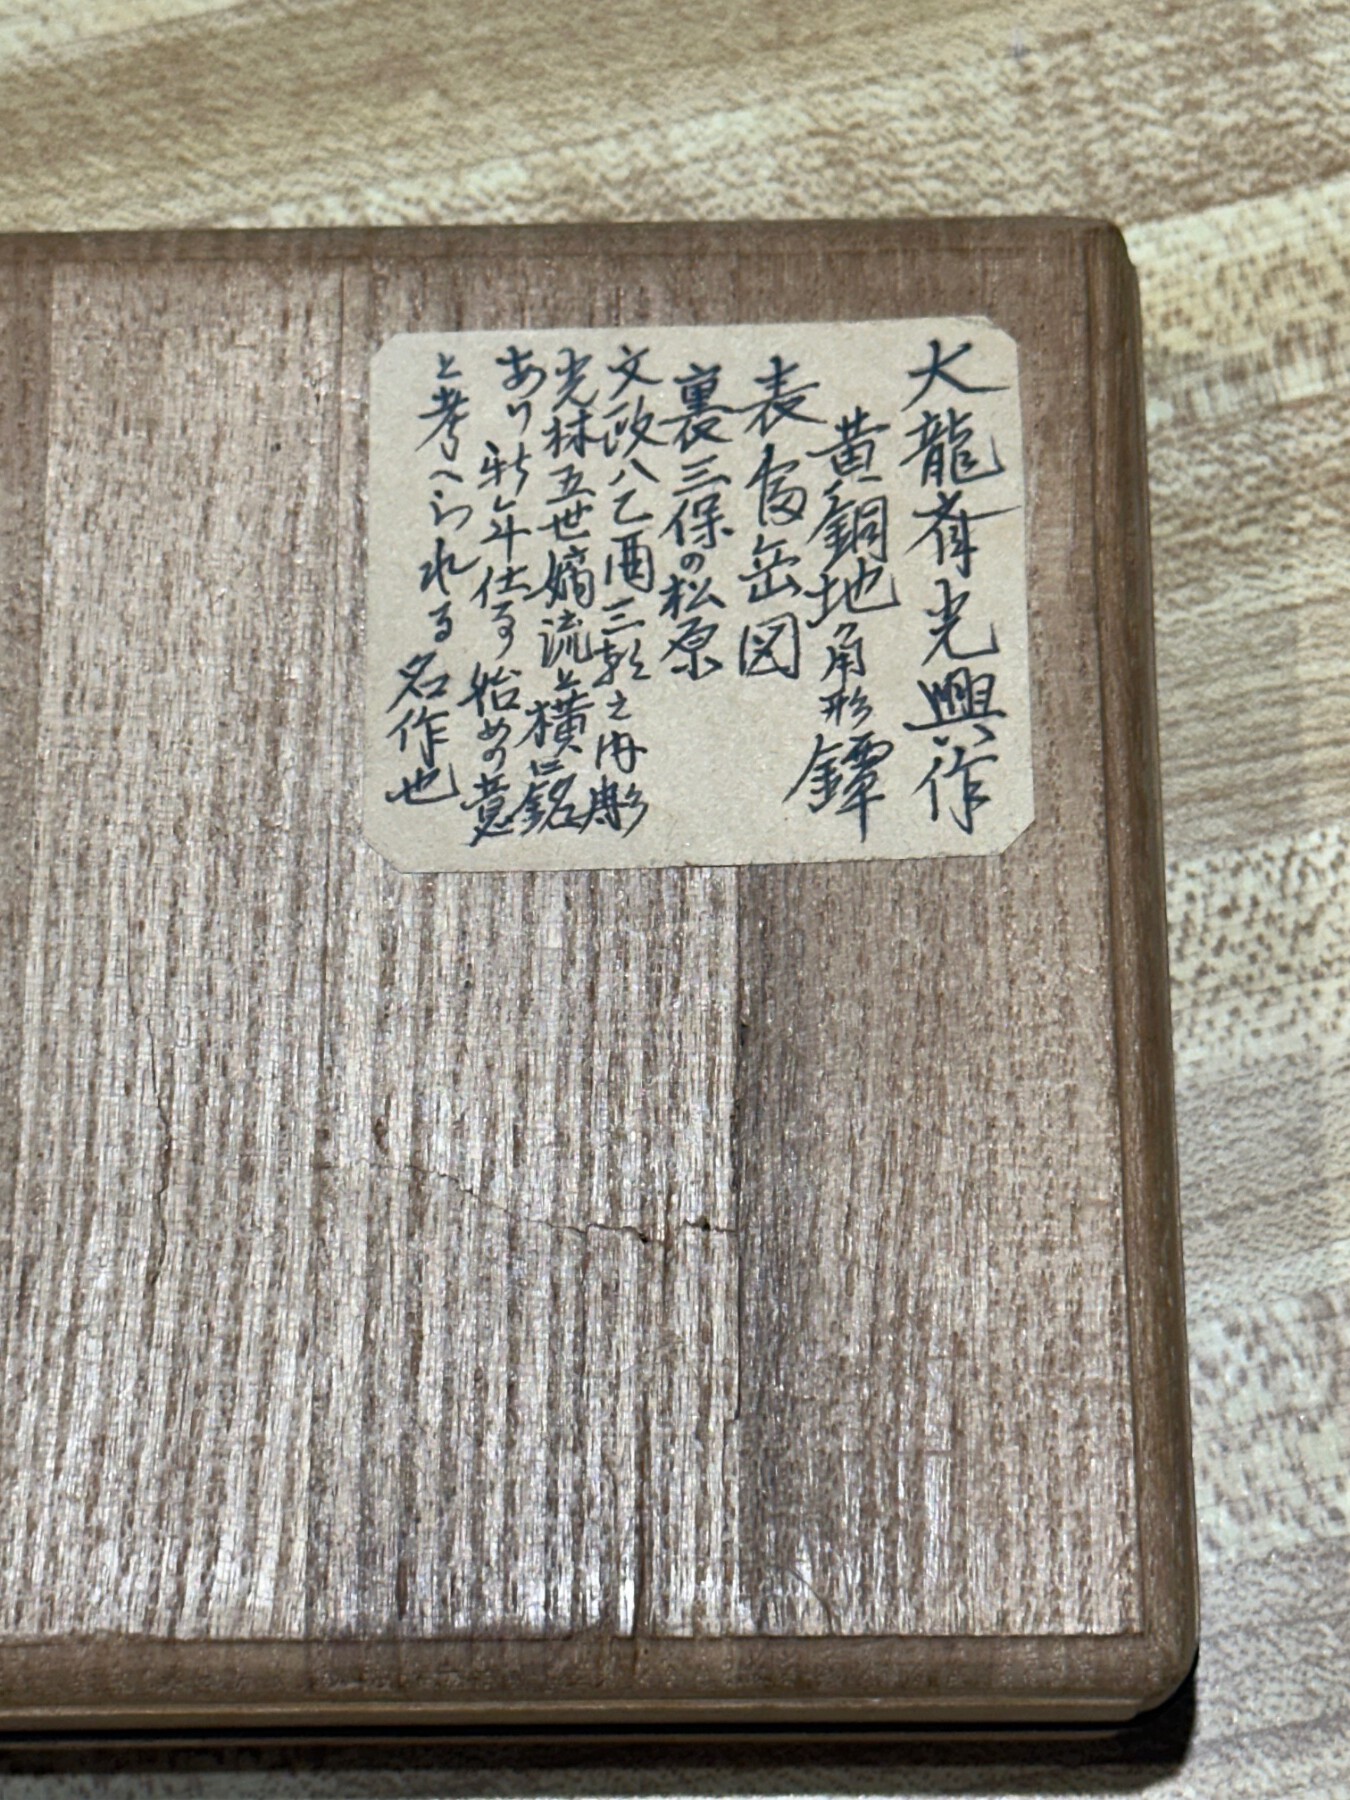 大龍斎光興作
黄銅地角形鐔
表富岳図
裏三保の松原
文政八乙酉三朝之内彫
光林五世嫡流と横に銘
あり新年仕事始めの意
と考へられる名作也